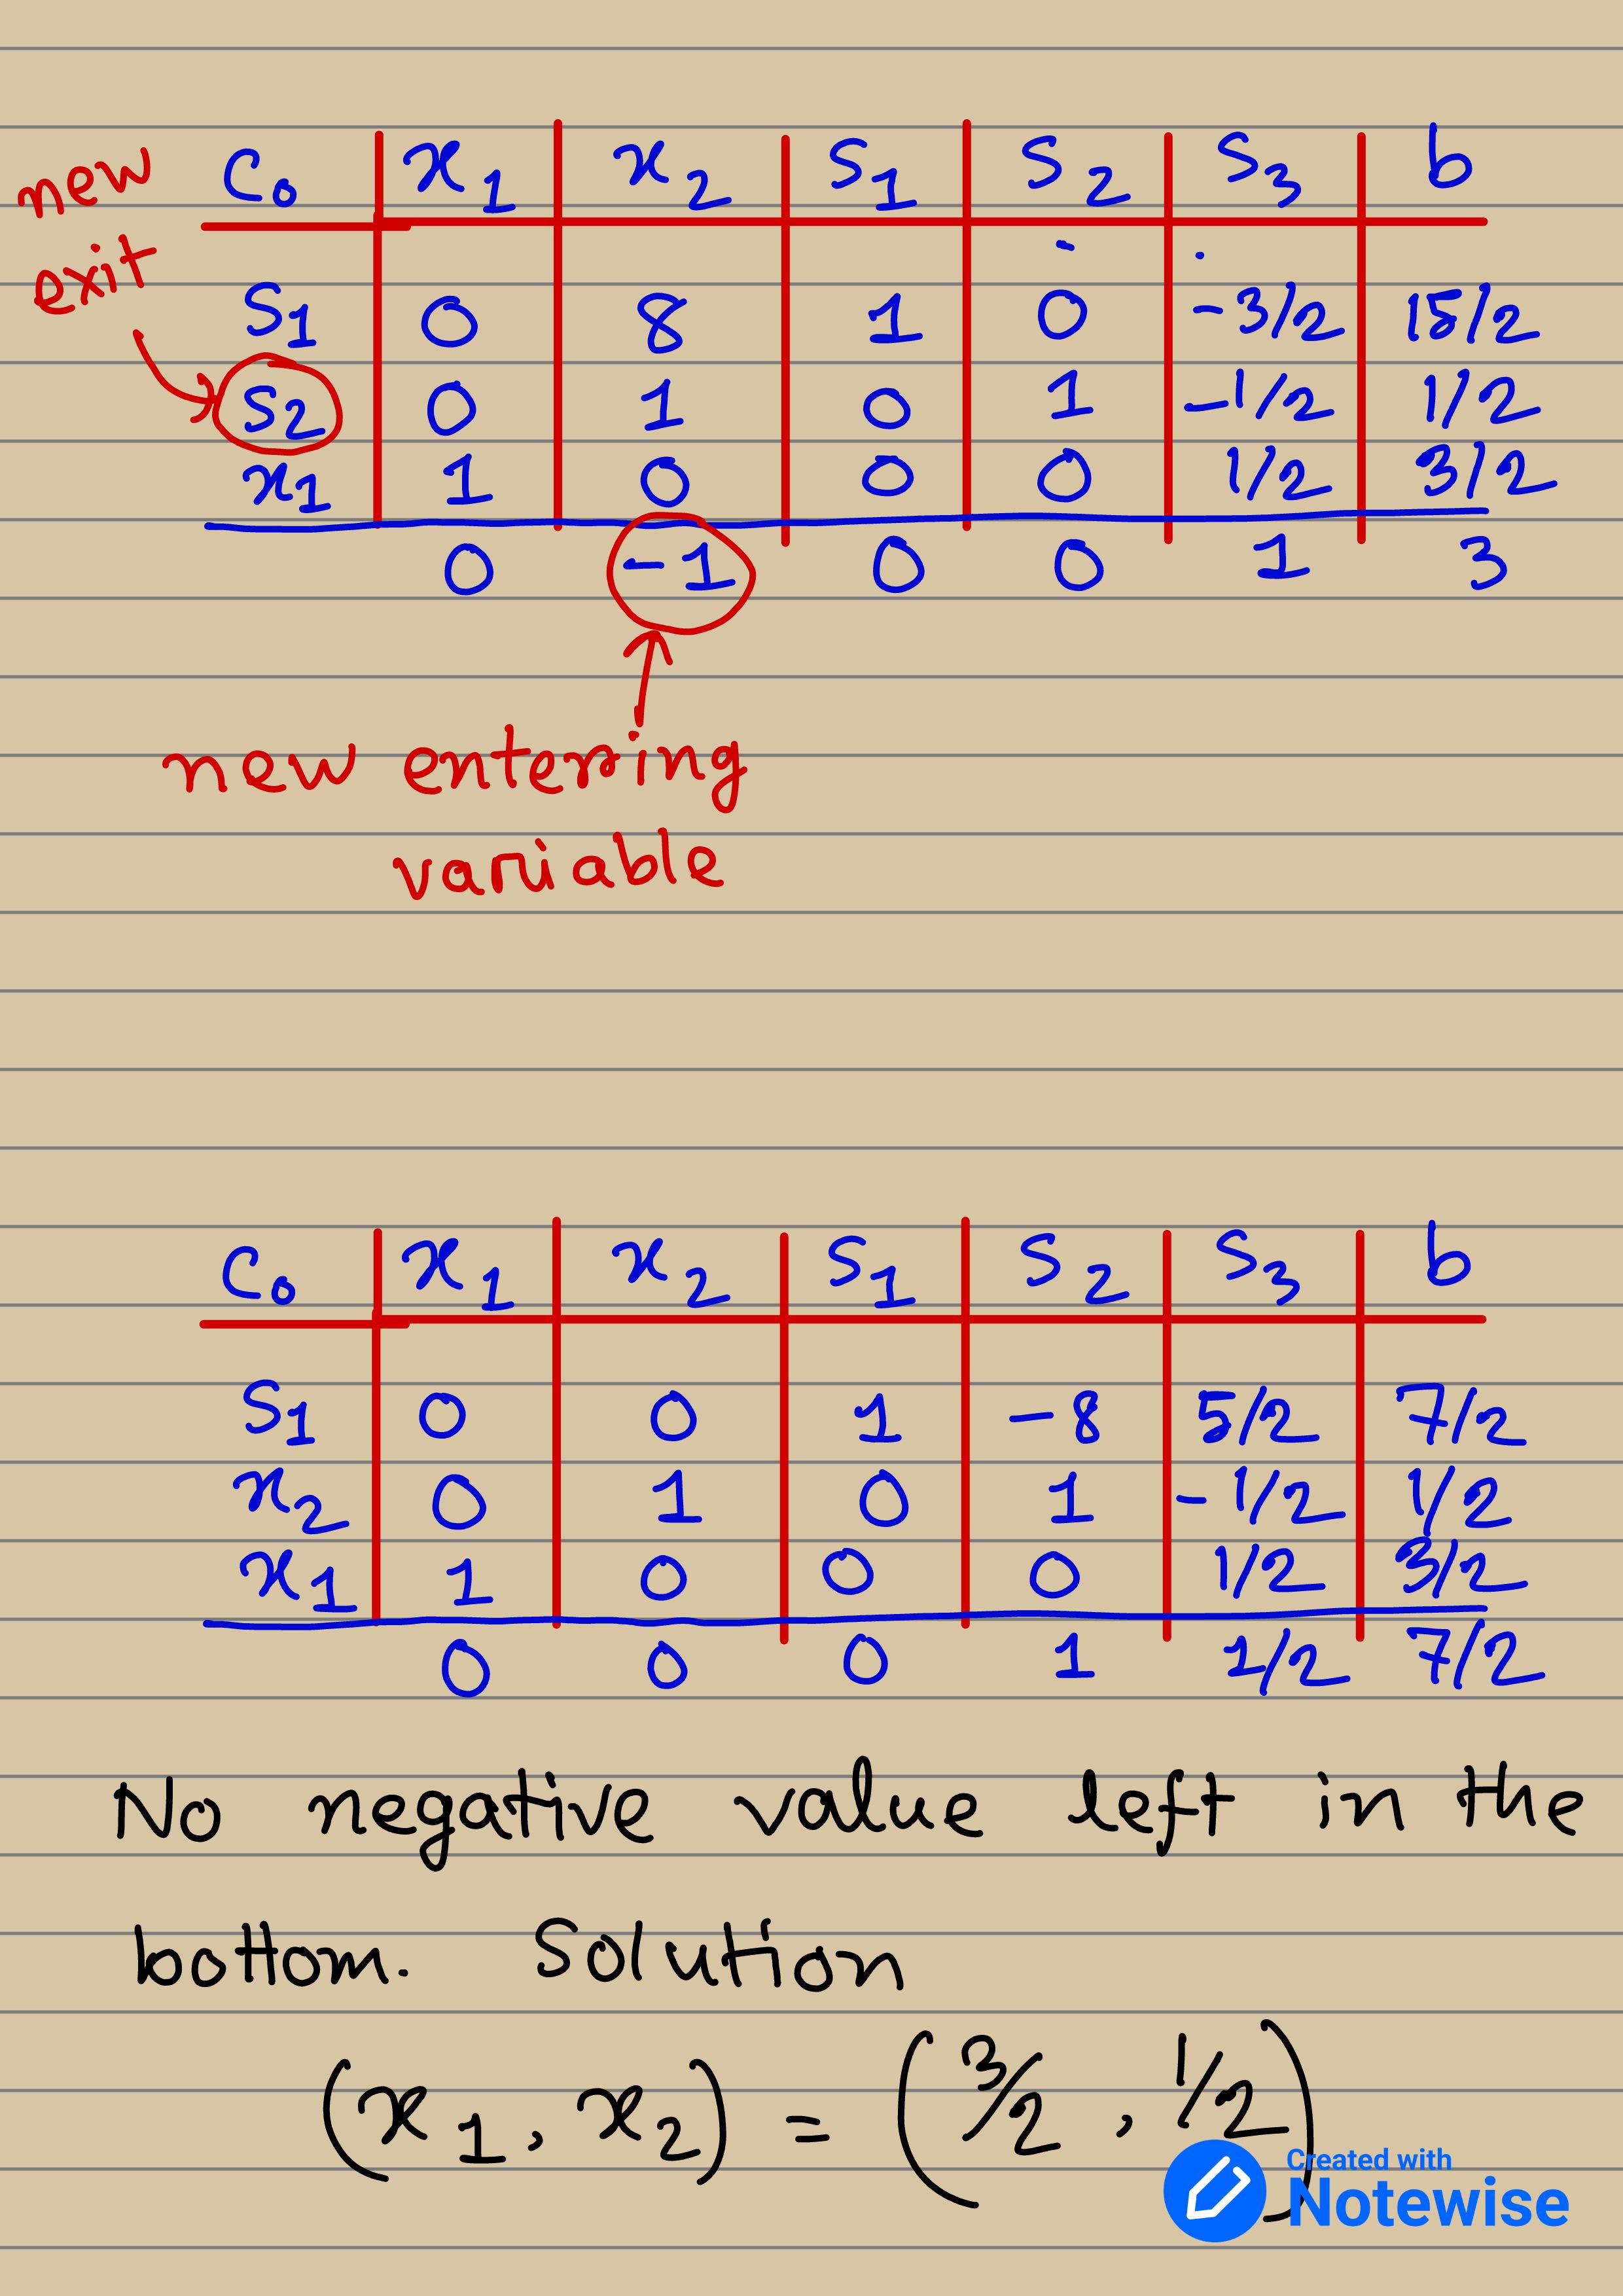 new exit
C₀ x₁ x₂ S₁ S₂ S₃ b
S₁ 0 8 1 0 -3/2 15/2
S₂ 0 1 0 1 -1/2 1/2
x₁ 1 0 0 0 1/2 3/2
0 -1 0 0 1 3
new entering
variable
C₀ x₁ x₂ S₁ S₂ S₃ b
S₁ 0 0 1 -8 5/2 7/2
x₂ 0 1 0 1 -1/2 1/2
x₁ 1 0 0 0 1/2 3/2
0 0 0 1 1/2 7/2
No negative value left in the
bottom. Solution
(x₁, x₂) = (3/2, 1/2)
Created with
Notewise